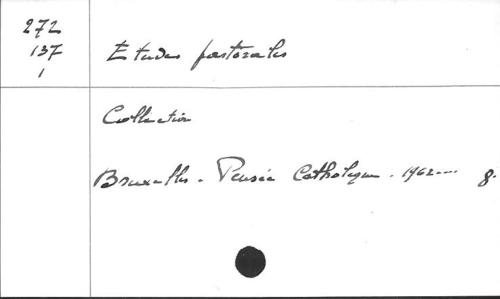 272
137
1
Etudes pastorales
Collection
Bruxelles - Pensée Catholique. 1962.... 8.